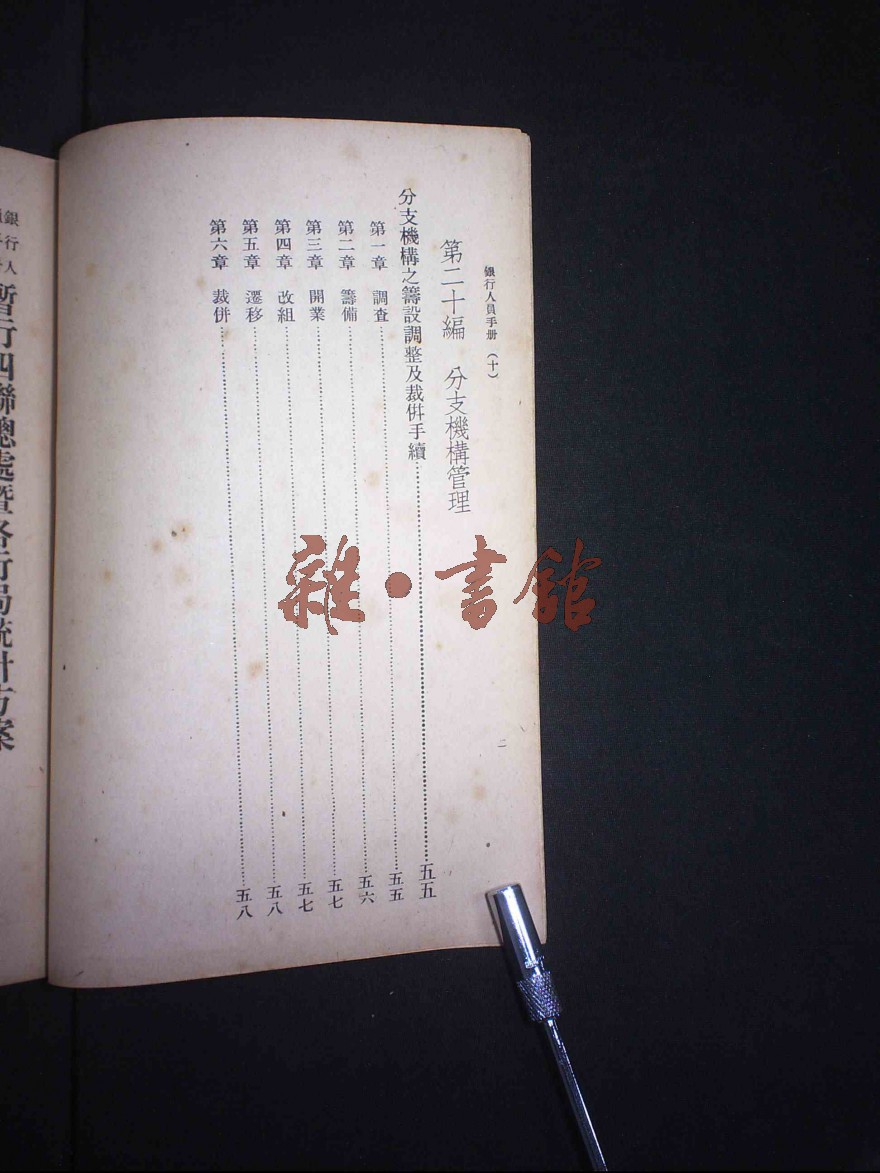 銀行人員手册(十)
第二十編 分支機構管理
分支機構之籌設調整及裁併手續……五五
第一章 調查……五五
第二章 籌備……五六
第三章 開業……五七
第四章 改組……五七
第五章 遷移……五八
第六章 裁併……五八
二
雜·書館
銀行人
暫行四聯總處暨各行局統計方案